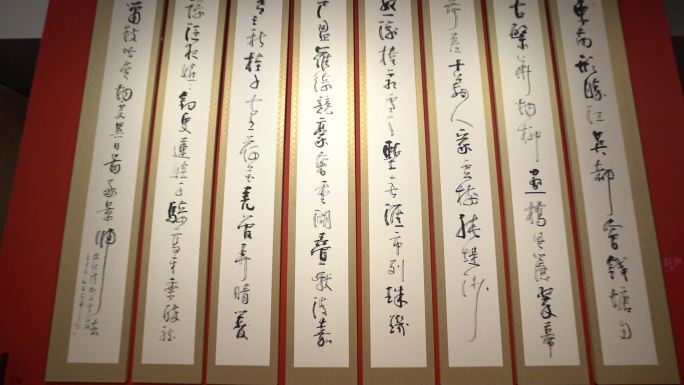 東南形勝江吳都會錢塘自
古繁華烟柳畫橋風簾翠幕
差十萬人家雲樹繞堤沙
怒濤捲霜雪天塹無涯市列珠璣
戶盈羅綺競豪奢重湖疊巘清嘉
有三秋桂子十里荷花羌管弄晴菱
歌泛夜嬉嬉釣叟蓮娃千騎擁高牙乘醉聽
簫鼓吟賞烟霞異日圖將景歸